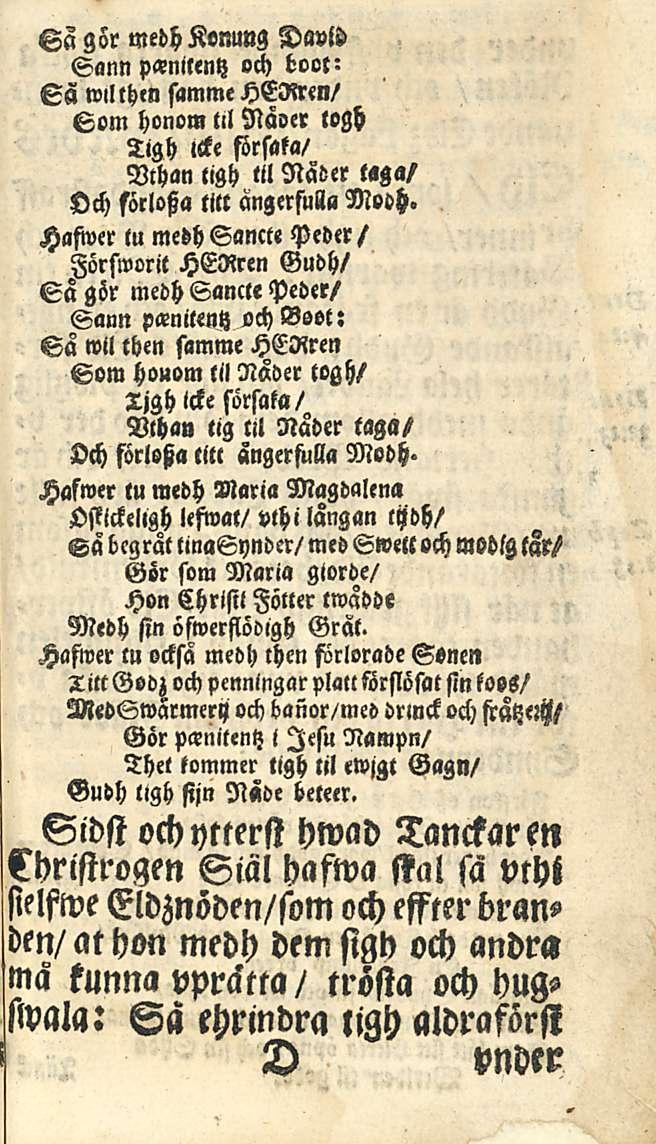 Så gör medh Konung David
Sann pœnitentz och boot:
Så wil then samme HERren/
Som honom til Nåder togh
Tigh icke försaka/
Vthan tigh til Nåder taga/
Och förloßa titt ångerfulla Modh.
Hafwer tu medh Sancte Peder/
Försworit HERren Gudh/
Så gör medh Sancte Peder/
Sann pœnitentz och Boot:
Så wil then samme HERren
Som honom til Nåder togh/
Tjgh icke försaka/
Vthan tig til Nåder taga/
Och förloßa titt ångerfulla Modh.
Hafwer tu medh Maria Magdalena
Oskickeligh lefwat/ vthi långan tijdh/
Så begråt tina Synder/ med Swett och modig tår/
Gör som Maria giorde/
Hon Christi Fötter twådde
Medh sin öfwerflödigh Gråt.
Hafwer tu också medh then förlorade Sonen
Titt Godz och penningar platt förslösat sin koos/
Med Swärmerij och bañor/med drinck och frätzerij/
Gör pœnitentz i Jesu Nampn/
Thet kommer tigh til ewjgt Gagn/
Gudh tigh sijn Nåde beteer.
Sidst och ytterst hwad Tanckar en
Christrogen Siäl hafwa skal så vthi
sielfwe Eldznöden/som och effter bran⸗
den/ at hon medh dem sigh och andra
må kunna vprätta/ trösta och hug⸗
swala: Så ehrindra tigh aldraförst
D vnder